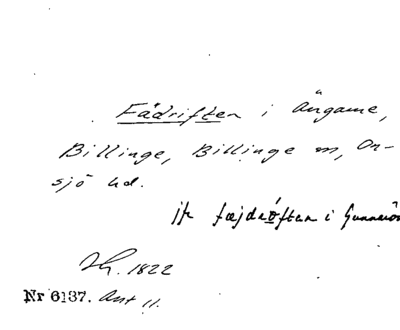 Fädriften i Ängarne,
Billinge, Billinge sn, On-
sjö hd.
jfr fæjdröften i Gunnarö
1822
Nr 6137. Ant 11.